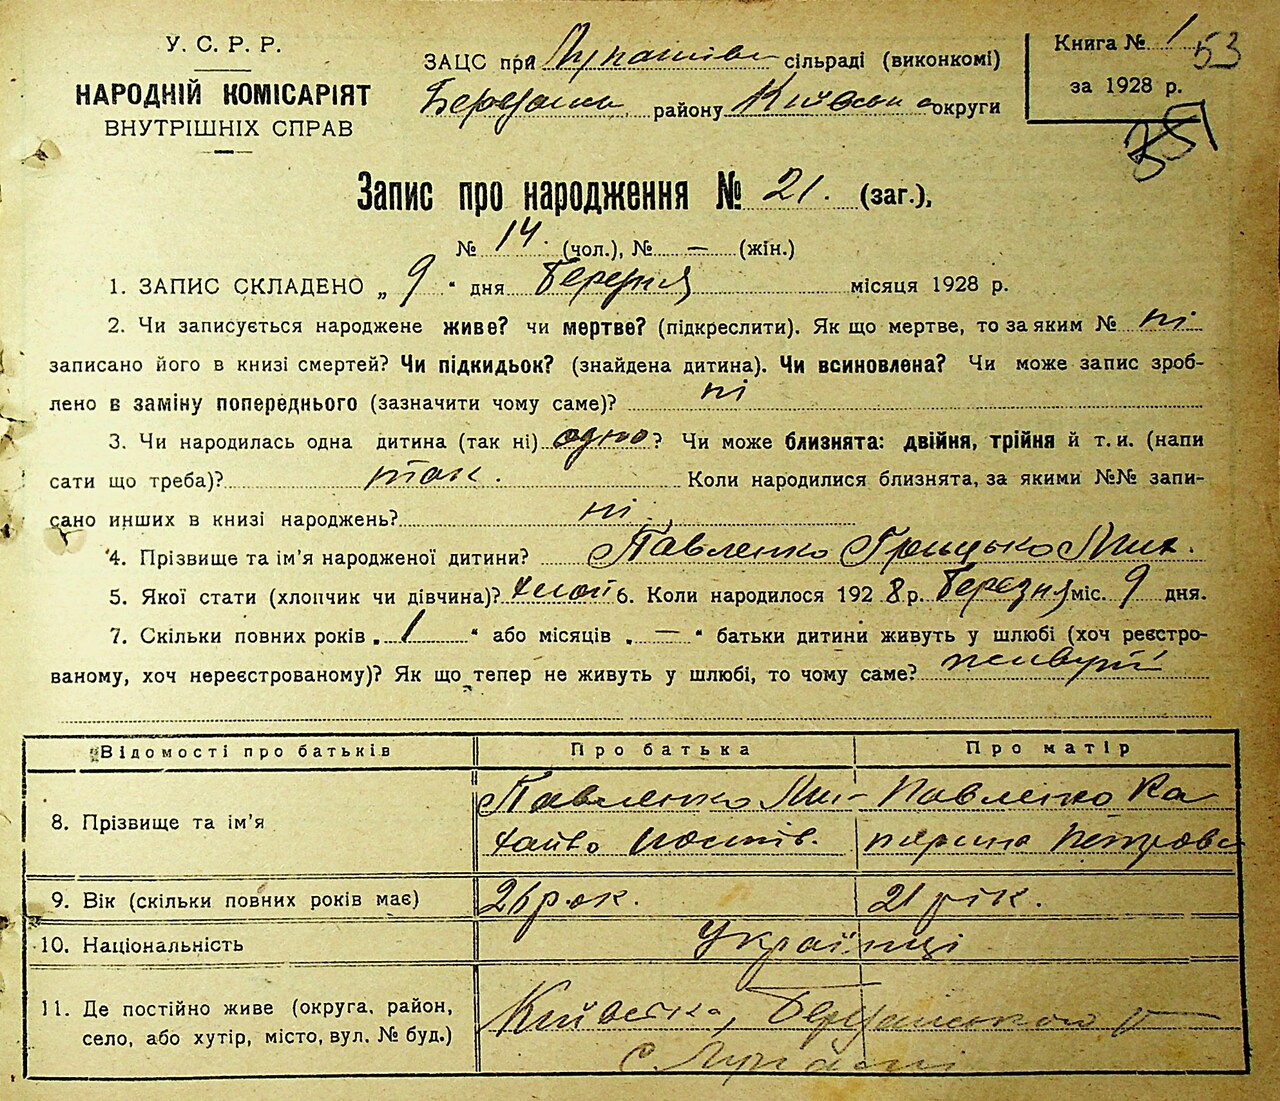 У. С. Р. Р.
НАРОДНІЙ КОМІСАРІЯТ
ВНУТРІШНІХ СПРАВ
ЗАЦС при сільраді (виконкомі)
району Київськ округи
Книга № 1
за 1928 р.
53
351
Запис про народження № 21. (заг.),
№ 14. (чол.), № — (жін.)
1. ЗАПИС СКЛАДЕНО „ 9 " дня Березня місяця 1928 р.
2. Чи записується народжене живе? чи мертве? (підкреслити). Як що мертве, то за яким № ні
записано його в книзі смертей? Чи підкидьок? (знайдена дитина). Чи всиновлена? Чи може запис зроб-
лено в заміну попереднього (зазначити чому саме)? ні
3. Чи народилась одна дитина (так ні) одно? Чи може близнята: двійня, трійня й т. и. (напи
сати що треба)? так. Коли народилися близнята, за якими №№ запи-
сано инших в книзі народжень? ні
4. Прізвище та ім'я народженої дитини? Павленко Грицько Мих.
5. Якої стати (хлопчик чи дівчина)? 6. Коли народилося 1928 р. Березня міс. 9 дня.
7. Скільки повних років „ 1 " або місяців „ — " батьки дитини живуть у шлюбі (хоч реєстро-
ваному, хоч нереєстрованому)? Як що тепер не живуть у шлюбі, то чому саме? живуть
Відомості про батьків Про батька Про матір
8. Прізвище та ім'я
Павленко Ми-
хайло
Павленко Ка
терина Петровн
9. Вік (скільки повних років має) 26 рок. 21 рік.
10. Національність Українці
11. Де постійно живе (округа, район,
село, або хутір, місто, вул. № буд.)
Київська, р
с.